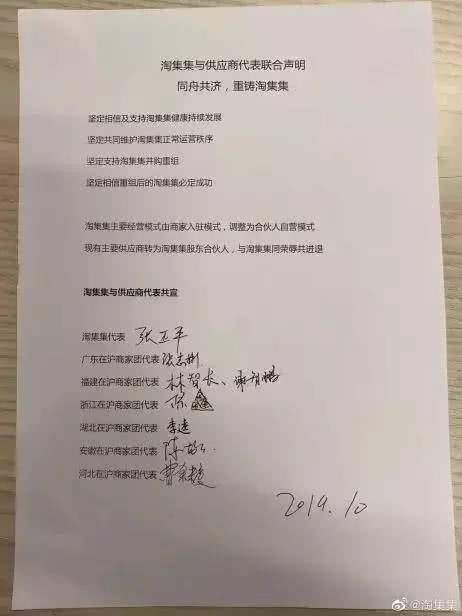 淘集集与供应商代表联合声明
同舟共济，重铸淘集集
坚定相信及支持淘集集健康持续发展
坚定共同维护淘集集正常运营秩序
坚定支持淘集集并购重组
坚定相信重组后的淘集集必定成功
淘集集主要经营模式由商家入驻模式，调整为合伙人自营模式
现有主要供应商转为淘集集股东合伙人，与淘集集同荣辱共进退
淘集集与供应商代表共宣
淘集集代表 张正平
广东在沪商家团代表 张志彬
福建在沪商家团代表 林智长、谢
浙江在沪商家团代表 陈鑫
湖北在沪商家团代表 李达
安徽在沪商家团代表 陈
河北在沪商家团代表 曹
2019.10
@淘集集